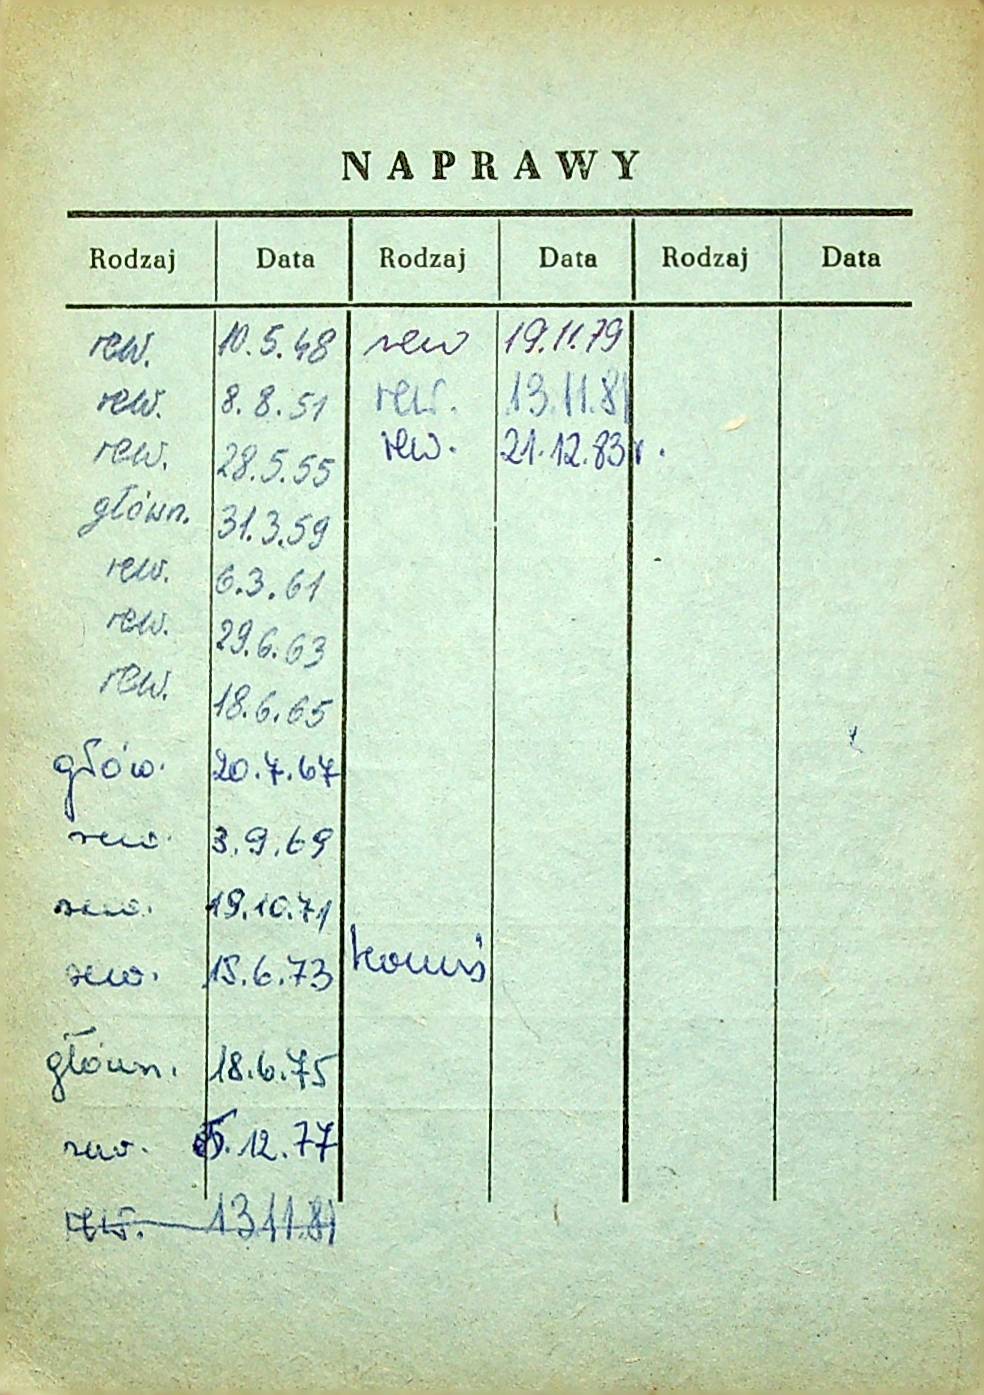 NAPRAWY
Rodzaj Data Rodzaj Data Rodzaj Data
rew. 10.5.48 rew 19.11.79
rew. 8.8.51 rew. 13.11.81
rew. 28.5.55 rew. 21.12.83r.
główn. 31.3.59
rew. 6.3.61
rew. 29.6.63
rew. 18.6.65
głów. 20.7.67
rew. 3.9.69
rew. 19.10.71
rew. 15.6.73
główn. 18.6.75
rew. 5.12.77
rew. 13.11.81